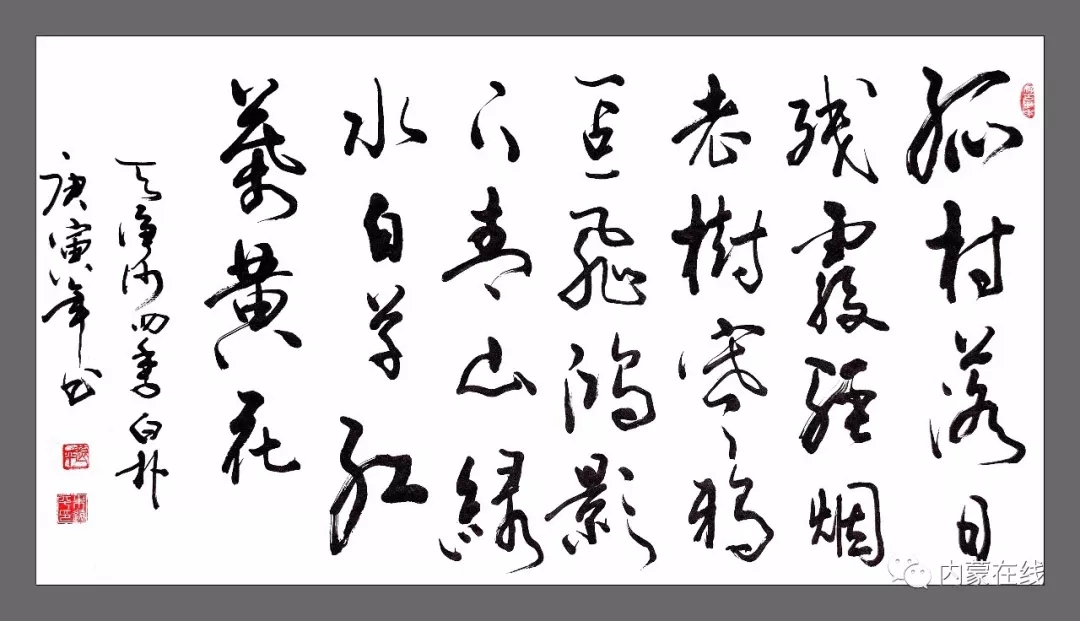 孤村落日
残霞轻烟
老树寒鸦
一点飞鸿影
下青山绿
水白草红
葉黄花
天净沙四季白朴
庚寅年书
内蒙在线